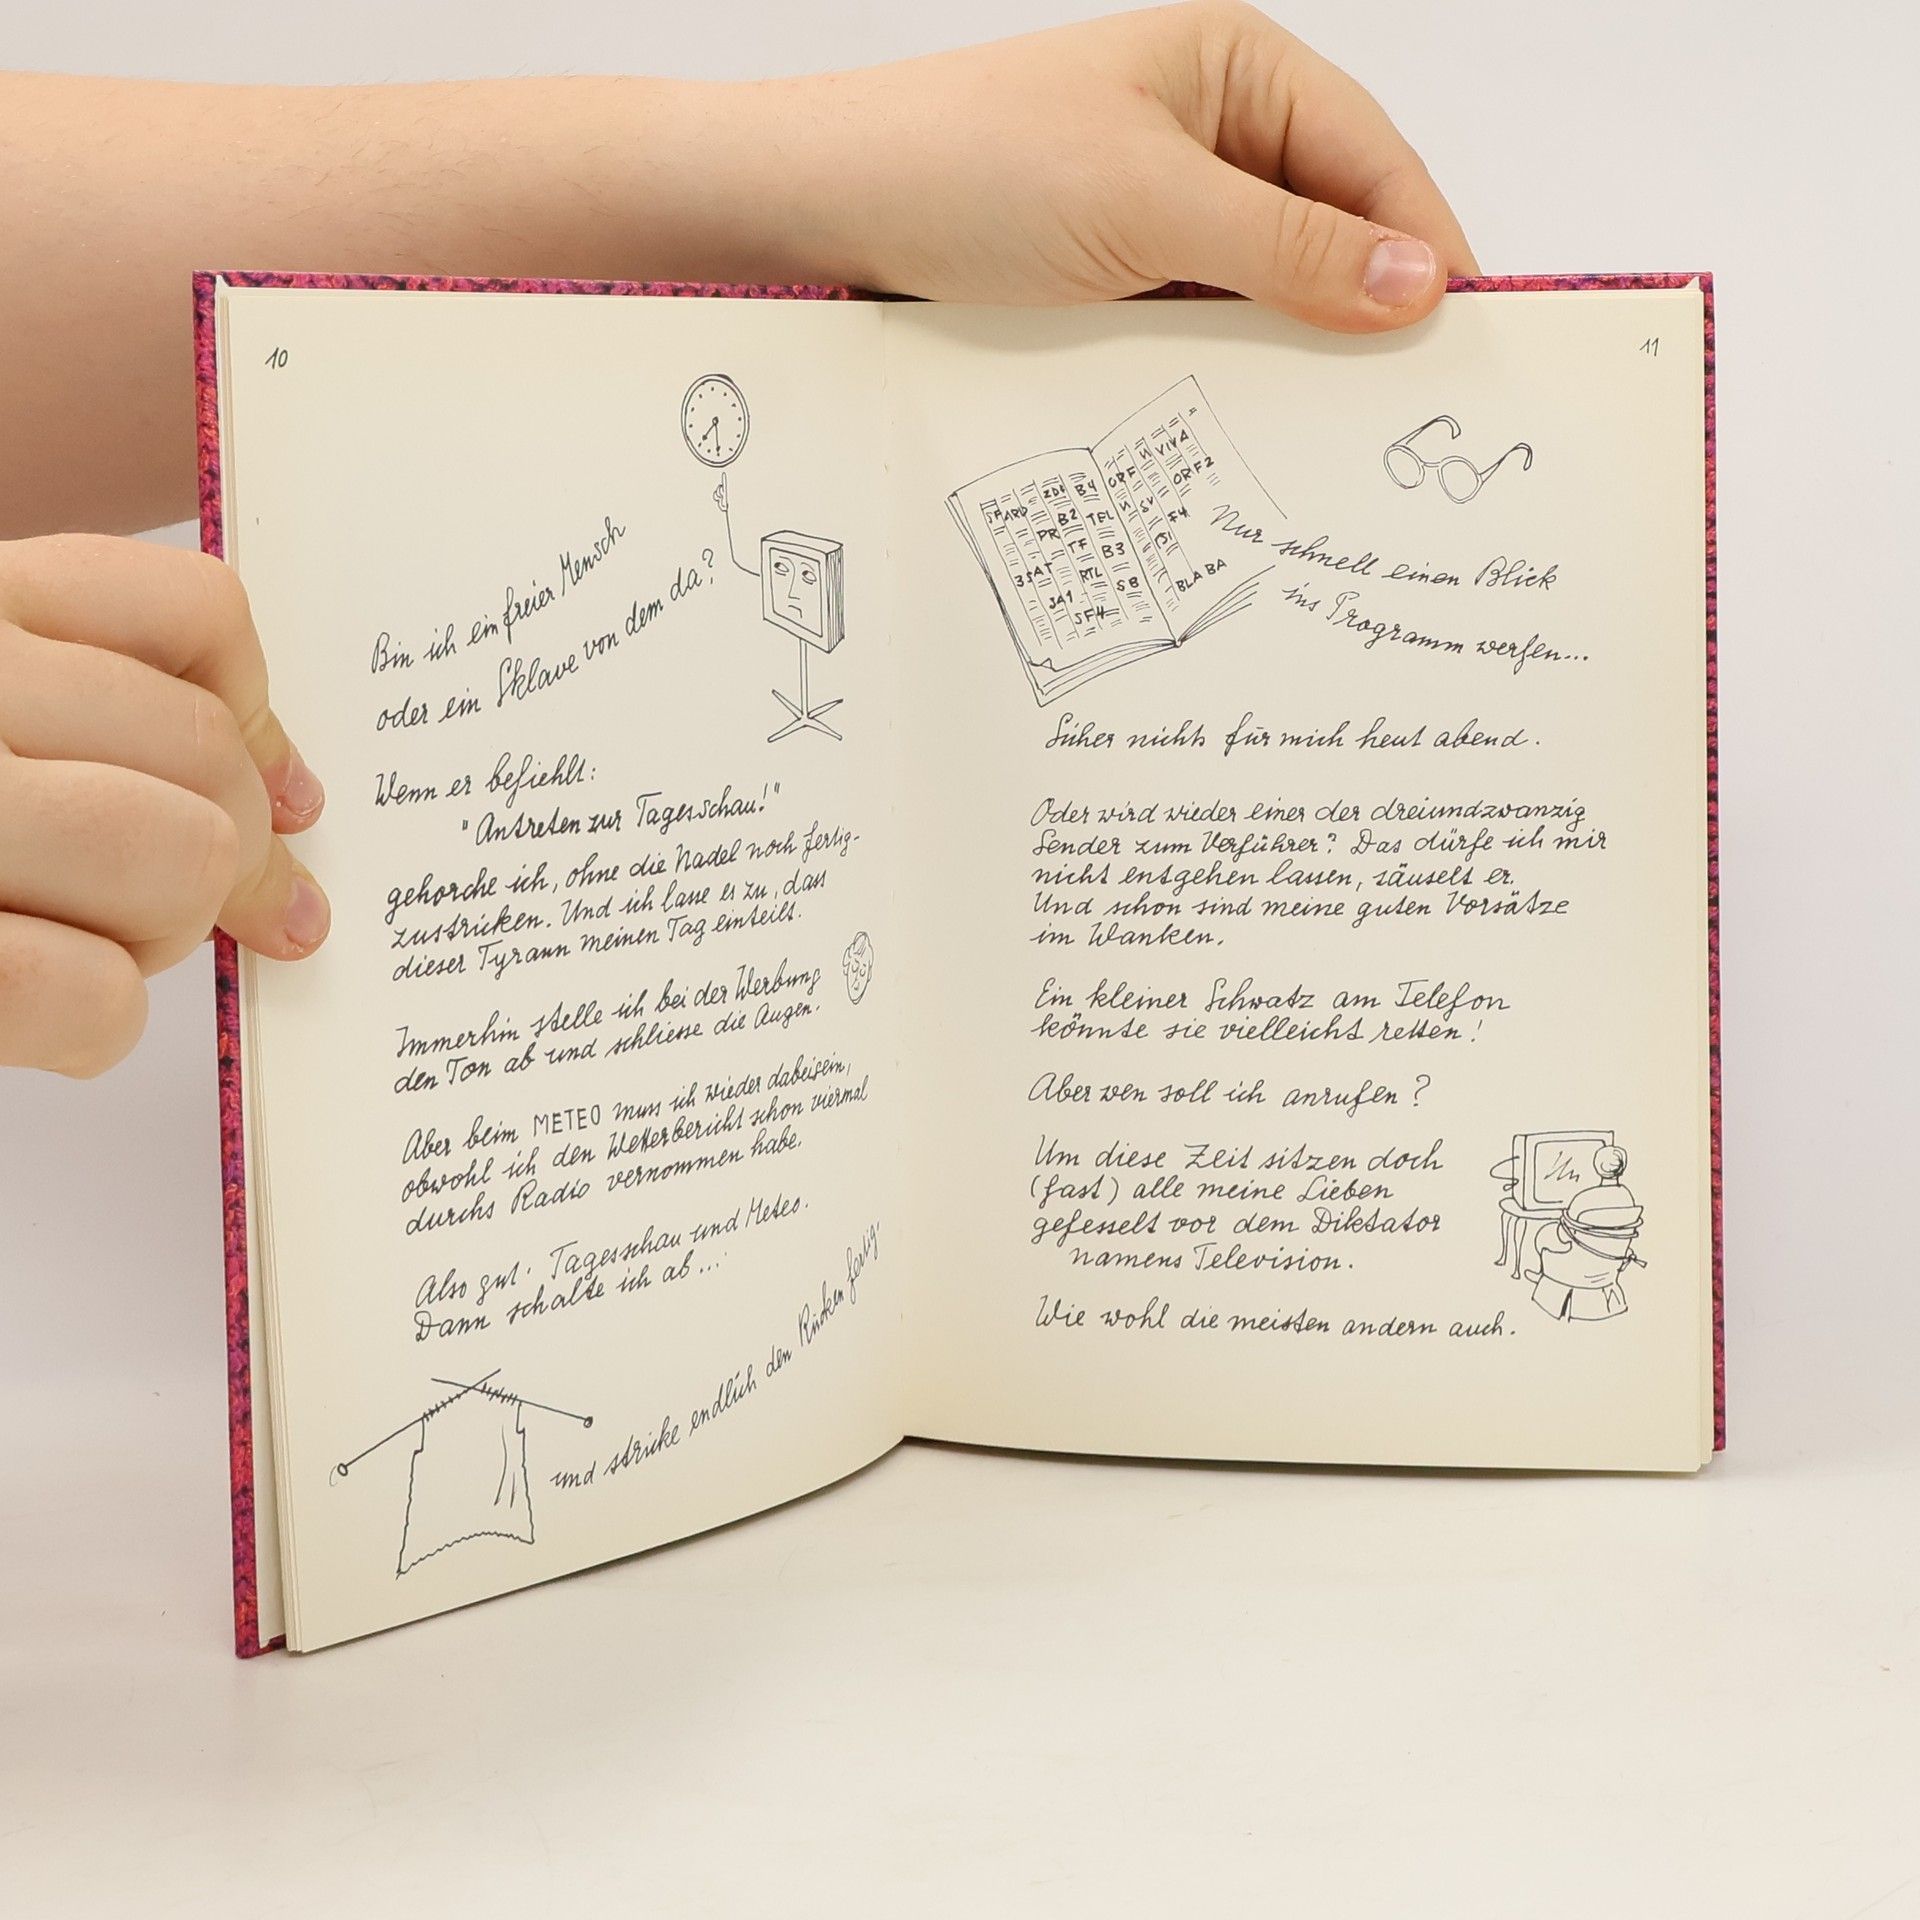 10
Bin ich ein freier Mensch
oder ein Sklave von dem da?
Wenn er befiehlt:
"Antreten zur Tagesschau!"
gehorche ich, ohne die Nadel noch fertig-
zustricken. Und ich lasse es zu, dass
dieser Tyrann meinen Tag einteilt.
Immerhin stelle ich bei der Werbung
den Ton ab und schliesse die Augen.
Aber beim METEO muss ich wieder dabeisein,
obwohl ich den Wetterbericht schon viermal
durchs Radio vernommen habe.
Also gut. Tagesschau und Meteo.
Dann schalte ich ab...
und stricke endlich den Rücken fertig.
11
SF ARD ZDF B4 ORF VIVA
PR B2 TEL SV ORF2
3SAT TF B3 F4
SA1 RTL S8 BLA BA
SF4
Nur schnell einen Blick
ins Programm werfen...
Sicher nichts für mich heut abend.
Oder wird wieder einer der dreiundzwanzig
Sender zum Verführer? Das dürfe ich mir
nicht entgehen lassen, säuselt er.
Und schon sind meine guten Vorsätze
im Wanken.
Ein kleiner Schwatz am Telefon
könnte sie vielleicht retten!
Aber wen soll ich anrufen?
Um diese Zeit sitzen doch
(fast) alle meine Lieben
gefesselt vor dem Diktator
namens Television.
Wie wohl die meisten andern auch.